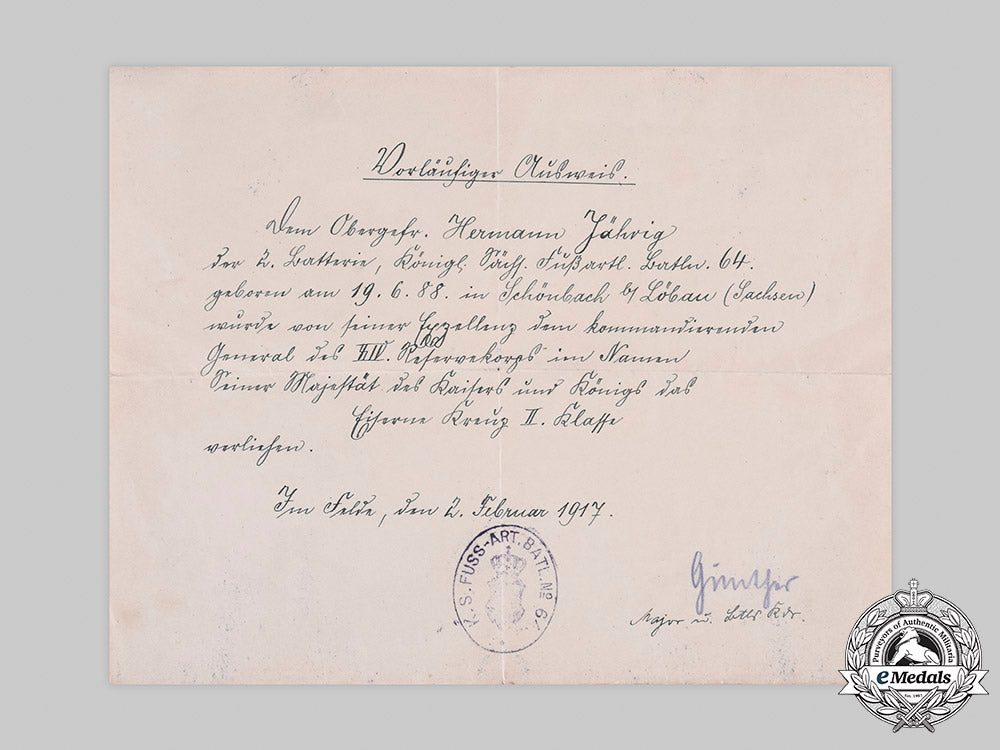 Vorläufiger Ausweis.
Dem Obergefr. Hermann Jährig
der 2. Batterie, Königl. Sächs. Fußartl. Batln. 64.
geboren am 19.6.88. in Schönbach b/ Löbau (Sachsen)
wurde von seiner Exzellenz dem kommandierenden
General des XIV. Reservekorps im Namen
Seiner Majestät des Kaisers und Königs das
Eiserne Kreuz II. Klasse
verliehen.
Im Felde, den 2. Februar 1917.
K. S. FUSS-ART. BATL. No 6
Günther
Major u. Batls Kdr.
Purveyors of Authentic Militaria
eMedals